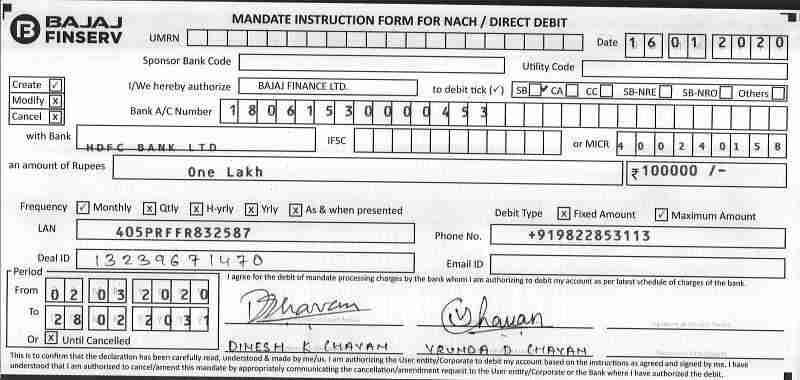 BAJAJ FINSERV
MANDATE INSTRUCTION FORM FOR NACH / DIRECT DEBIT
UMRN Date 16 01 2020
Sponsor Bank Code Utility Code
Create ✓ I/We hereby authorize BAJAJ FINANCE LTD. to debit tick (✓) SB ✓ CA CC SB-NRE SB-NRO Others
Modify x
Cancel x Bank A/C Number 18061530000453
with Bank HDFC BANK LTD IFSC or MICR 400240158
an amount of Rupees One Lakh ₹ 100000 /-
Frequency ✓ Monthly x Qtly x H-yrly x Yrly x As & when presented Debit Type x Fixed Amount ✓ Maximum Amount
LAN 405PRFFR832587 Phone No. +919822853113
Deal ID 13239671470 Email ID
I agree for the debit of mandate processing charges by the bank whom I am authorizing to debit my account as per latest schedule of charges of the bank.
Period
From 02 03 2020
To 28 02 2031
Or x Until Cancelled
DINESH K CHAVAN VRUNDA D CHAVAN
This is to confirm that the declaration has been carefully read, understood & made by me/us. I am authorizing the User entity/Corporate to debit my account based on the instructions as agreed and signed by me. I have
understood that I am authorized to cancel/amend this mandate by appropriately communicating the cancellation/amendment request to the User-entity/Corporate or the Bank where I have authorized the debit.